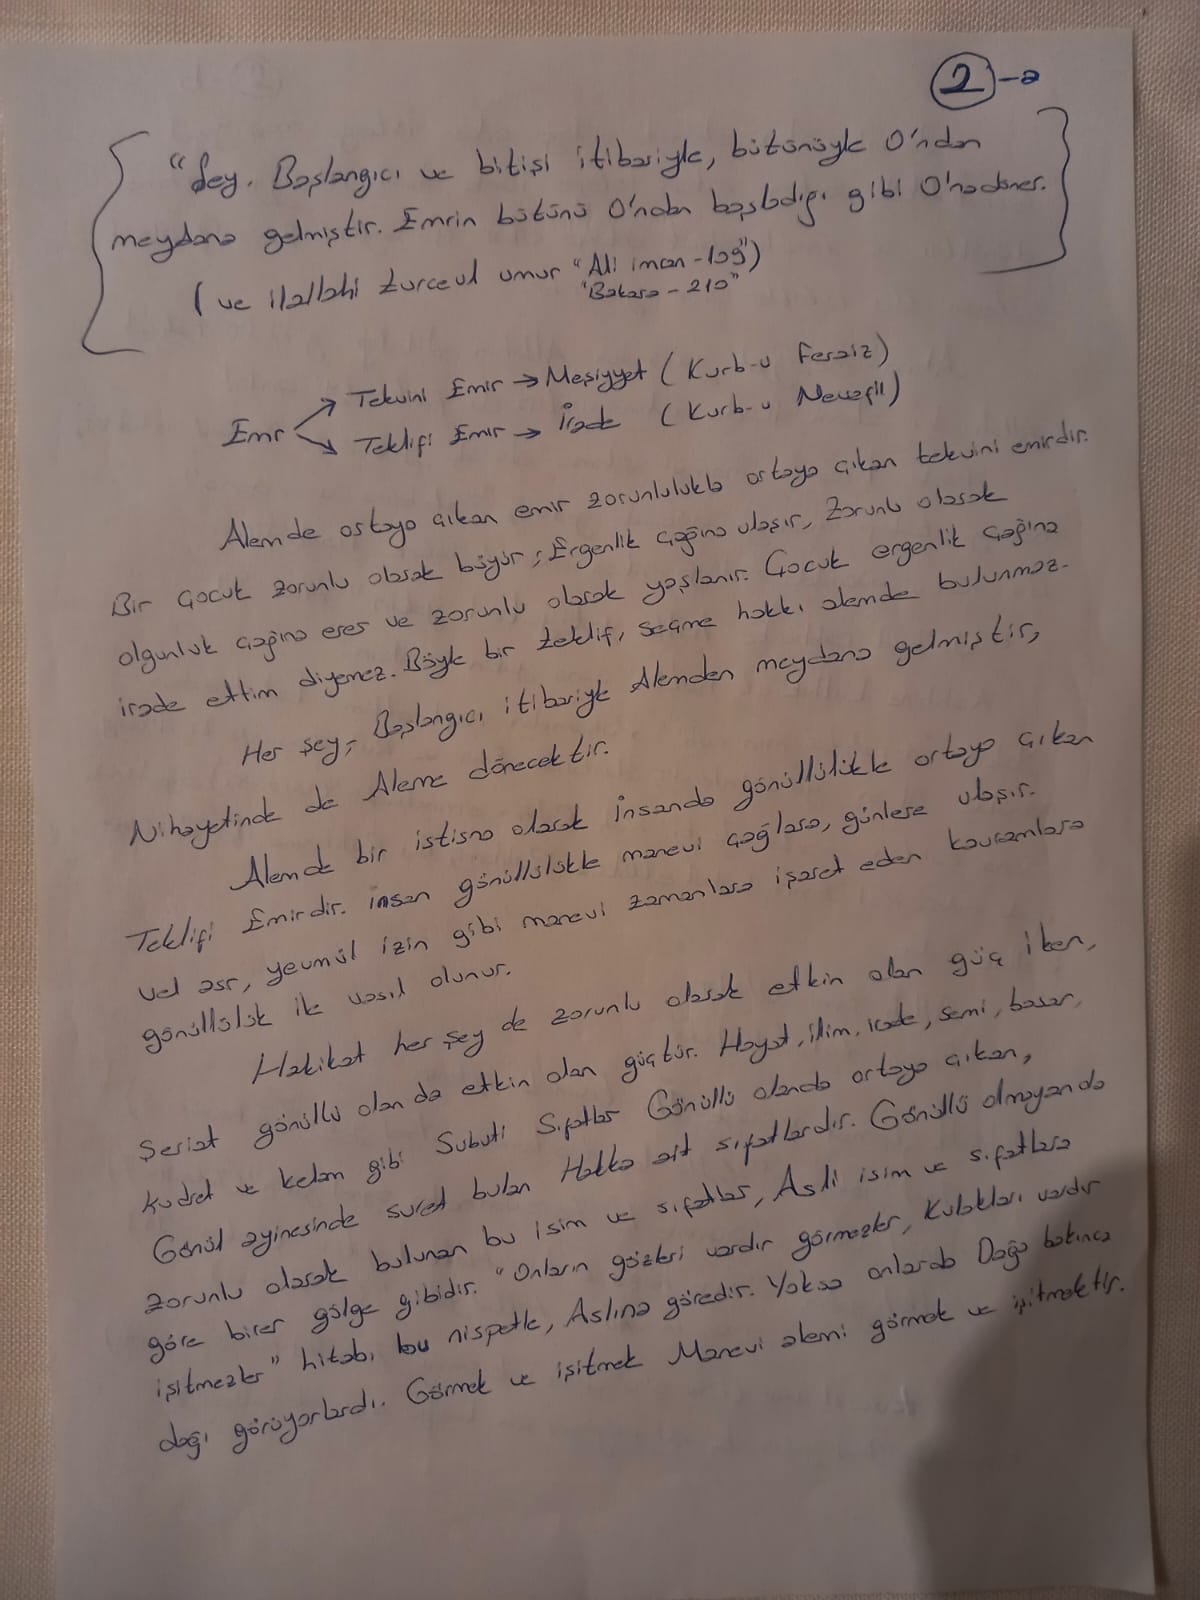 2-a
"Şey. Başlangıcı ve bitişi itibariyle, bütünüyle O'ndan
meydana gelmiştir. Emrin bütünü O'ndan başladığı gibi O'na döner.
(ve ilallahi turceul umur "Ali imran-109")
"Bakara-210"
Emr → Tekvini Emir → Meşiyyet (Kurb-u Feraiz)
→ Teklifi Emir → İrade (Kurb-u Nevafil)
Alemde ortaya çıkan emir zorunlulukla ortaya çıkan tekvini emirdir.
Bir çocuk zorunlu olarak büyür, Ergenlik çağına ulaşır, Zorunlu olarak
olgunluk çağına erer ve zorunlu olarak yaşlanır. Çocuk ergenlik çağına
irade ettim diyemez. Böyle bir teklif, seçme hakkı alemde bulunmaz.
Her şey, Başlangıcı itibariyle Alemden meydana gelmiştir,
Nihayetinde de Aleme dönecektir.
Alemde bir istisna olarak İnsanda gönüllülükle ortaya çıkan
Teklifi Emirdir. insan gönüllülükle manevi çağlara, günlere ulaşır.
vel asr, yevmül izin gibi manevi zamanlara işaret eden kavramlara
gönüllülük ile vasıl olunur.
Hakikat her şey de zorunlu olarak etkin olan güç iken,
Şeriat gönüllü olan da etkin olan güçtür. Hayat, ilim, irade, semi, basar,
kudret ve kelam gibi Subuti Sıfatlar Gönüllü olanda ortaya çıkan,
Gönül ayinesinde suret bulan Hakka ait sıfatlardır. Gönüllü olmayanda
zorunlu olarak bulunan bu isim ve sıfatlar, Asli isim ve sıfatlara
göre birer gölge gibidir. "Onların gözleri vardır görmezler, Kulakları vardır
işitmezler" hitabı bu nispetle, Aslına göredir. Yoksa onlarda Dağa bakınca
dağı görüyorlardı. Görmek ve işitmek Manevi alemi görmek ve işitmektir.